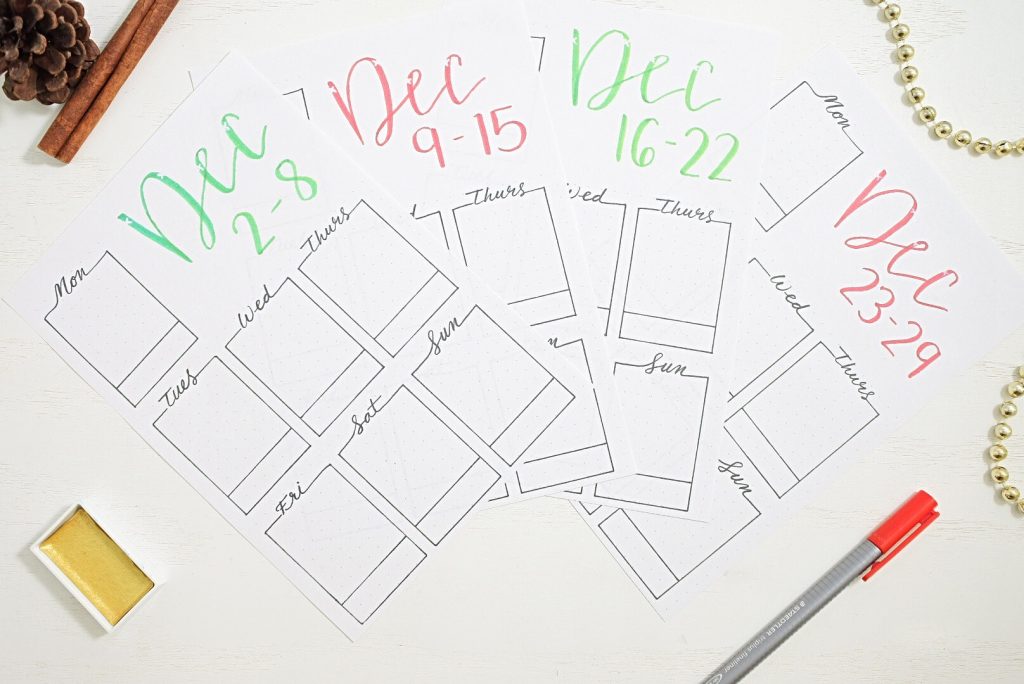 Dec
2-8
Mon
Tues
Wed
Thurs
Fri
Sat
Sun
Dec
9-15
Thurs
n
Dec
16-22
Wed
Thurs
Sun
Dec
23-29
Mon
Wed
Thurs
Sun
STAEDTLER triplus fineliner